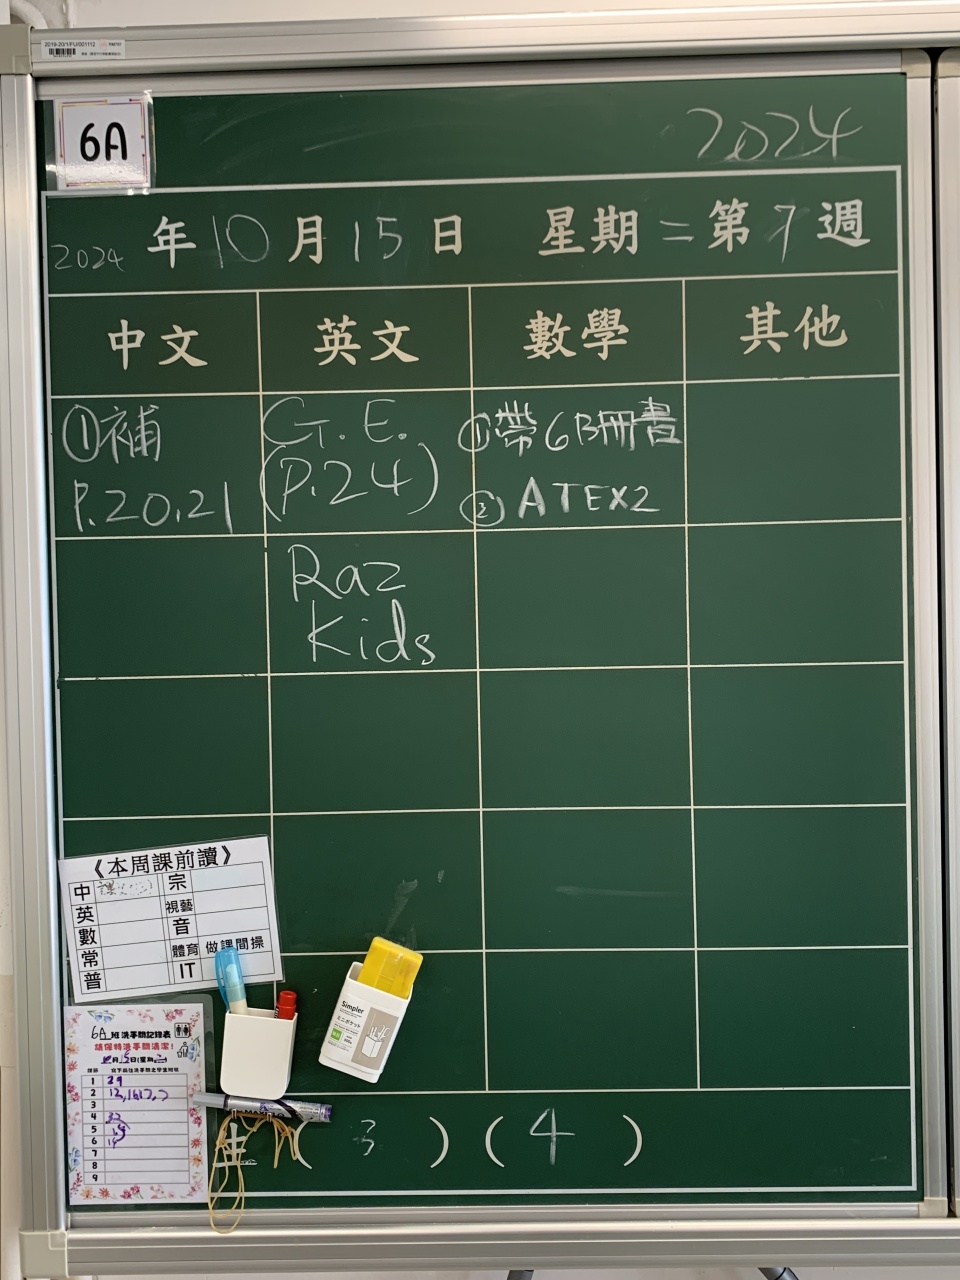 2019-20/1/FU/001112
6A
2024
2024 年 10 月 15 日 星期 二 第 7 週
中文 英文 數學 其他
①補
P.20,21
G.E.
(P.24)
①帶6B冊書
②ATEX2
Raz
Kids
《本周課前讀》
中 宗
英 視藝
數 音
常 體育 做課間操
普 IT
Simpler
ミニポケット
6A班洗手間記錄表
請保持洗手間清潔!
10月15日(星期二)
1 29
2
3
4
5
6
7
8
9
生 ( 3 ) ( 4 )